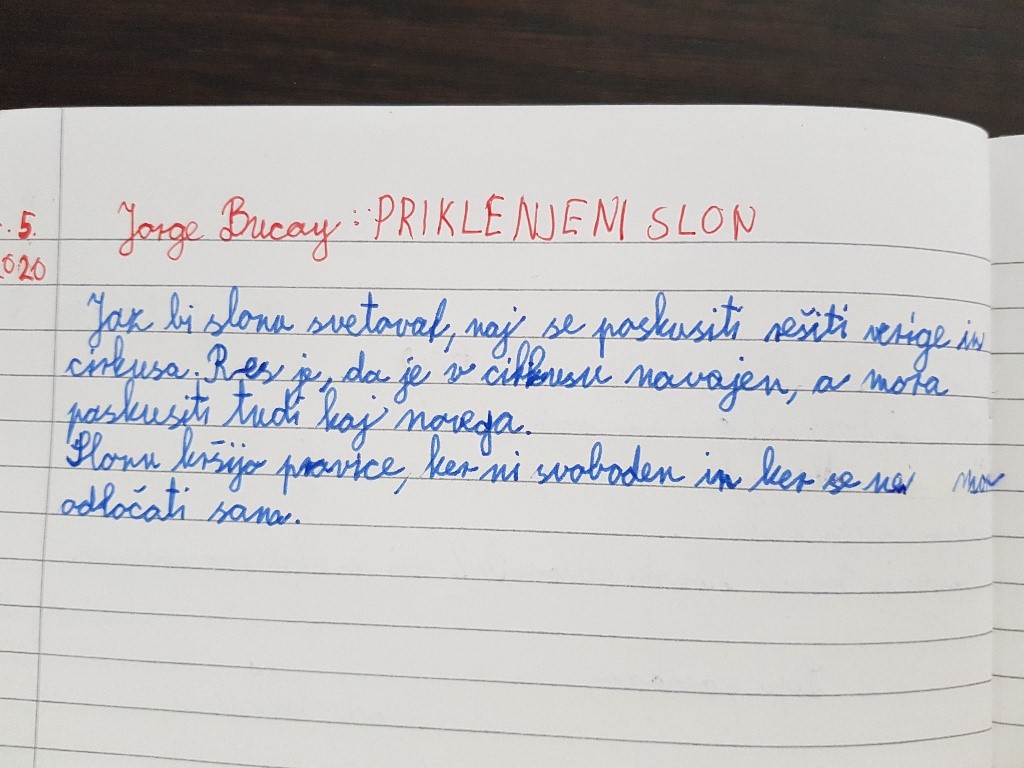 . 5. Jorge Bucay: PRIKLENJENI SLON
2020
Jaz bi slonu svetoval, naj se poskusiti rešiti verige in
cirkusa. Res je, da je v cirkusu navajen, a mora
poskusiti tudi kaj novega.
Slonu kršijo pravice, ker ni svoboden in ker se ne
odločati sama.